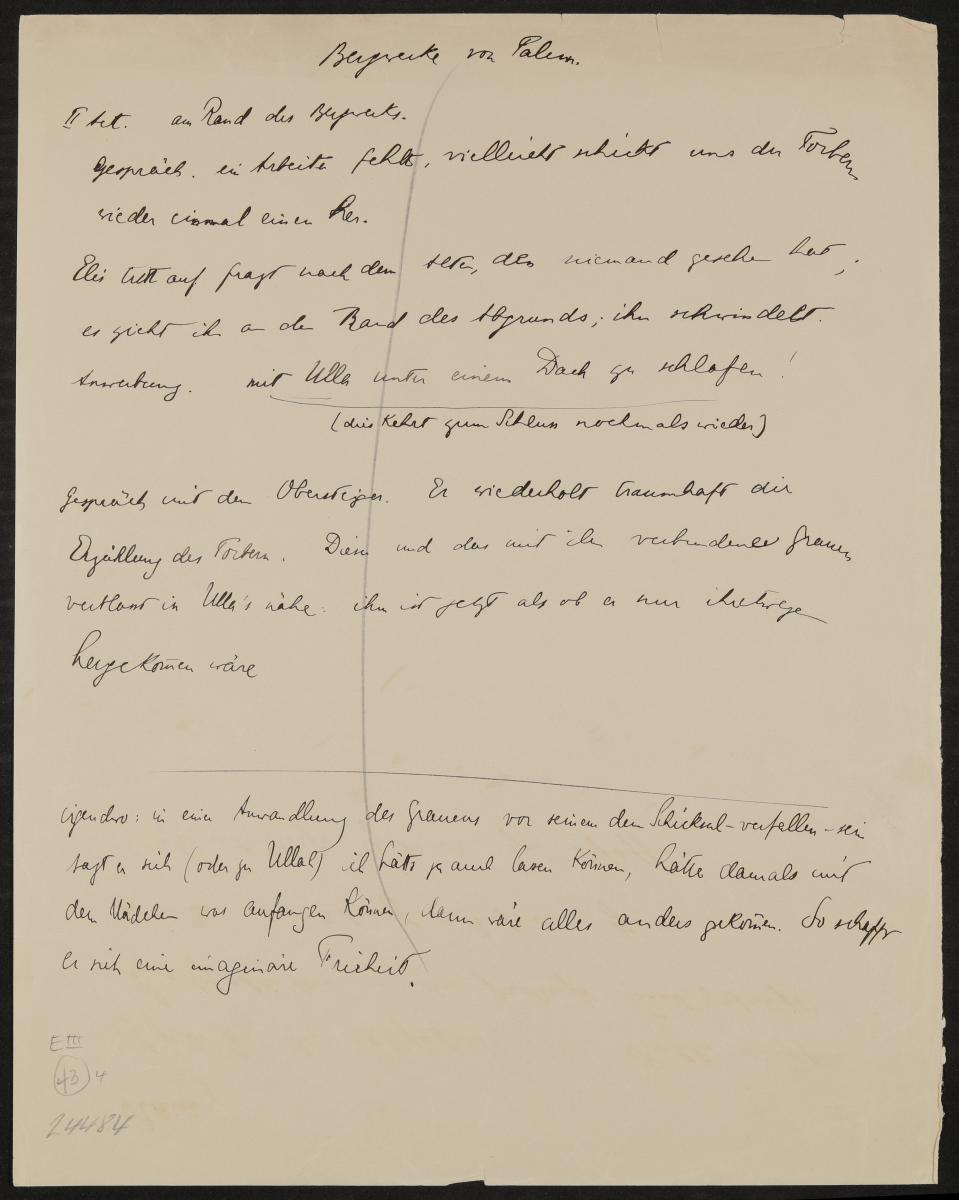 Bergwerke von Falun.
II Act. am Rand des Bergwerks.
Gespräch. ein Arbeiter fehlt, vielleicht schickt uns der Torbern
wieder einmal einen her.
Elis tritt auf fragt nach dem Alten, den niemand gesehen hat;
es zieht ihn an den Rand des Abgrunds; ihn schwindelt.
Anwerbung. mit Ulla unter einem Dach zu schlafen!
(dies kehrt zum Schluss nochmals wieder)
Gespräch mit dem Obersteiger. Er wiederholt traumhaft die
Erzählung des Torbern. Diese und das mit ihr verbundene Grauen
verblasst in Ulla's nähe: ihm ist jetzt als ob er nur ihretwegen
hergekom̅en wäre
irgendwo: in einer Anwandlung des Grauens vor seinem dem Schicksal-verfallen-sein
sagt er sich (oder zu Ulla!) ich hätts ja auch lassen können, hätte damals mit
dem Mädchen was anfangen können, dann wäre alles anders gekom̅en. So schafft
er sich eine imaginäre Freiheit.
EIII
43 4
24484